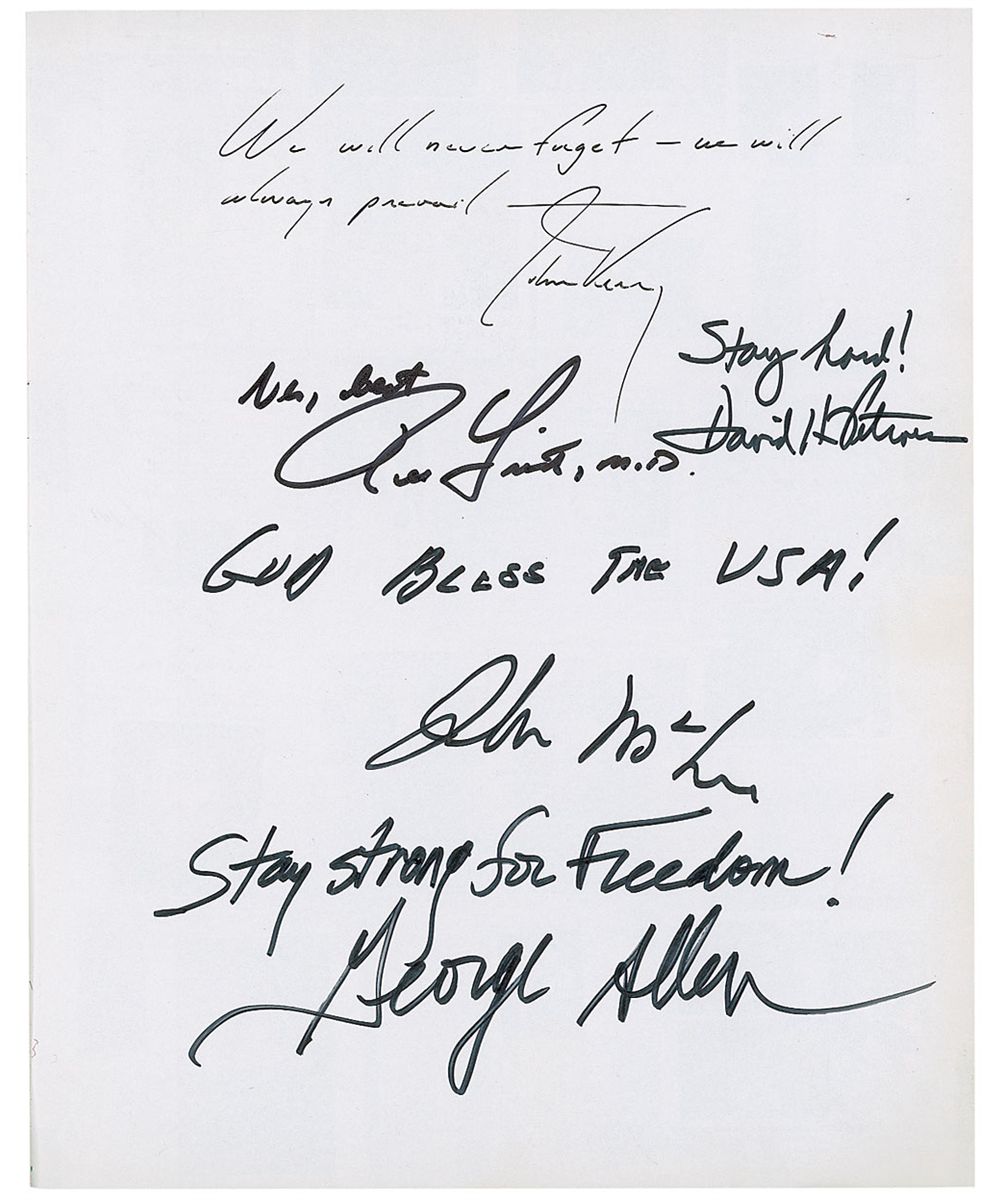 We will never forget – we will
always prevail –
John Kerry
Stay hard!
David H. Petraeus
best
M.D.
GOD BLESS THE USA!
John
Stay strong for Freedom!
George Allen